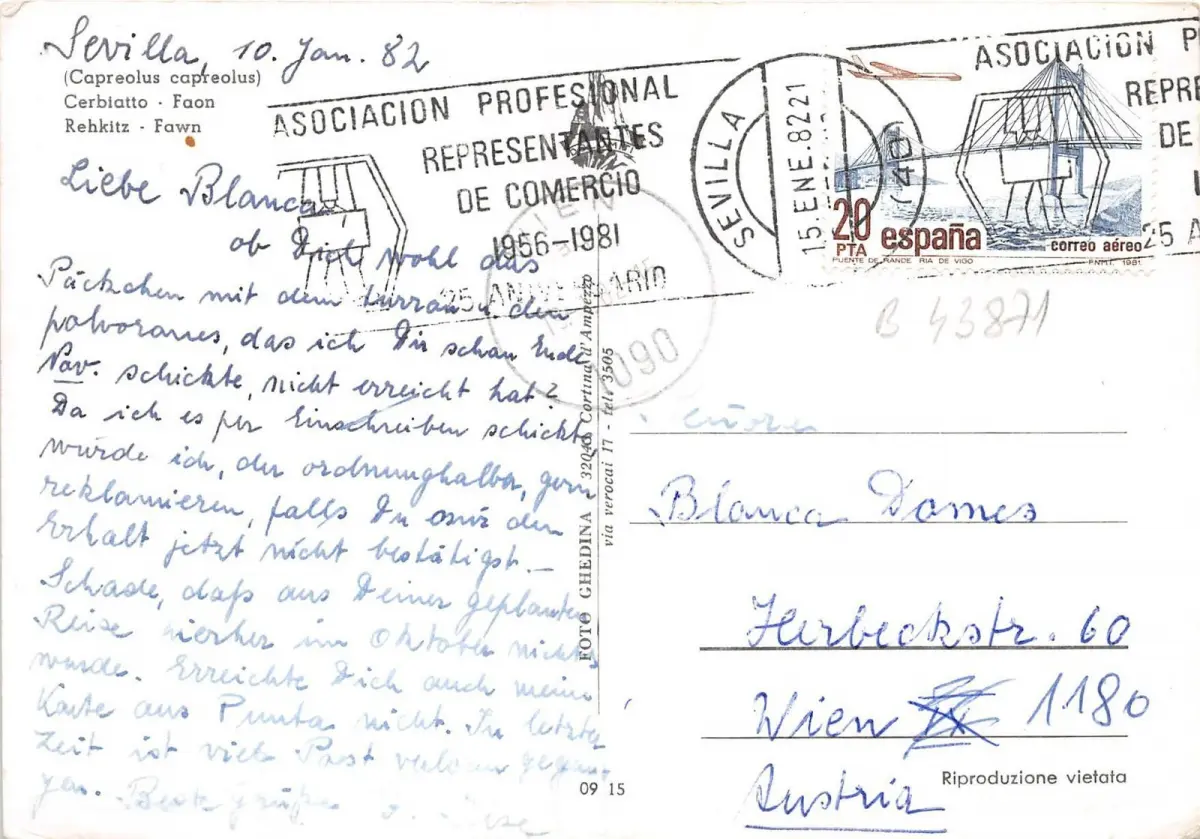 Sevilla, 10. Jan. 82
(Capreolus capreolus)
Cerbiatto · Faon
Rehkitz · Fawn
Liebe Blanca
ob Dich wohl das
Päckchen mit dem turron u. den
polvorones, das ich Dir schon Ende
Nov. schickte, nicht erreicht hat?
Da ich es per Einschreiben schickte,
würde ich, der ordnunghalber, gern
reklamieren, falls Du mir den
Erhalt jetzt nicht bestätigst. —
Schade, daß aus Deiner geplanten
Reise hierher im Oktober nichts
wurde. Erreichte Dich auch meine
Karte aus Punta nicht. In letzter
Zeit ist viel Post verloren gegan-
gen. Beste Grüße
ASOCIACION PROFESIONAL
REPRESENTANTES
DE COMERCIO
1956-1981
25 ANIVERSARIO
SEVILLA
15 ENE. 82 21
ASOCIACION P
REPRE
DE
25 A
20
PTA
españa
correo aéreo
PUENTE DE RANDE. RIA DE VIGO
F.N.M.T. 1981
WIEN
1090
B 43871
FOTO GHEDINA 32043 Cortina d'Ampezzo
via verocai 17 - tel. 3505
Blanca Domes
Herbeckstr. 60
Wien 1180
Austria
Riproduzione vietata
09 15